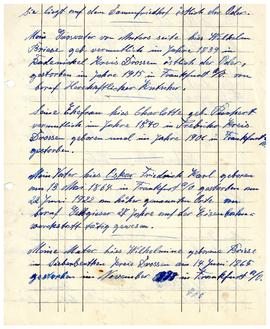 Sie liegt auf dem Dammfriedhof östlich der Oder.
Mein Grossvater von Mutters seite hies Wilhelm
Briese geb vermutlich im Jahre 1839 in
Radenickel Kreis Drossen östlich der Oder,
gestorben im Jahre 1915 in Frankfurt a/O. von
beruf Herschaftlicher Kutscher.
Seine Ehefrau hies Charlotte geb.
vermutlich im Jahre 1840 in Kreis
Drossen gestorben im Jahre in Frankfurt
gestorben.
Mein Vater hies Oskar Friedrich Karl geboren
am 13 Mai 1864 in Frankfurt a/O gestorben am
22 Juni 1922 am selber genannten Orte von
beruf Gelbgieser Jahre auf der Eisenbahn-
werkstatt tätig gewesen.
Meine Mutter hies Wilhelmine geborene Briese
in Kreis Drossen am 14 Juni 1865
gestorben im November in Frankfurt a/O.